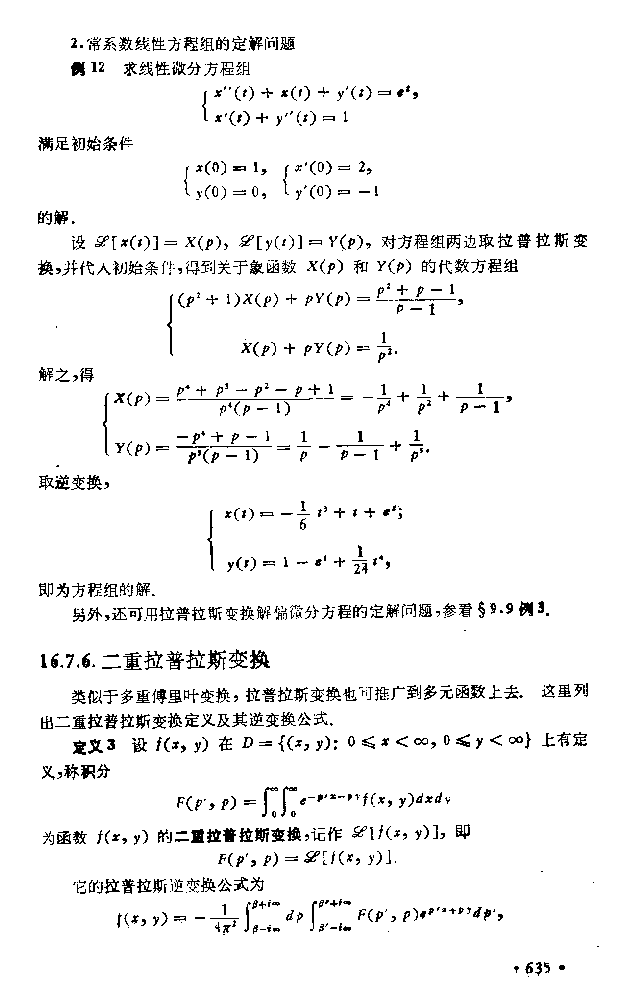 2.常系数线性方程组的定解问题
例 12 求线性微分方程组
{ x''(t) + x(t) + y'(t) = e^t,
x'(t) + y''(t) = 1
满足初始条件
{ x(0) = 1, { x'(0) = 2,
y(0) = 0, y'(0) = -1
的解.
设 ℒ[x(t)] = X(p), ℒ[y(t)] = Y(p), 对方程组两边取拉普拉斯变
换,并代入初始条件,得到关于象函数 X(p) 和 Y(p) 的代数方程组
{ (p² + 1)X(p) + pY(p) = (p² + p - 1)/(p - 1),
X(p) + pY(p) = 1/p².
解之,得
{ X(p) = (p⁴ + p³ - p² - p + 1)/(p⁴(p - 1)) = -1/p⁴ + 1/p² + 1/(p - 1),
Y(p) = (-p⁴ + p - 1)/(p⁵(p - 1)) = 1/p - 1/(p - 1) + 1/p⁵.
取逆变换,
{ x(t) = -1/6 t³ + t + e^t;
y(t) = 1 - e^t + 1/24 t⁴,
即为方程组的解.
另外,还可用拉普拉斯变换解偏微分方程的定解问题,参看 §9.9 例 3.
16.7.6. 二重拉普拉斯变换
类似于多重傅里叶变换, 拉普拉斯变换也可推广到多元函数上去. 这里列
出二重拉普拉斯变换定义及其逆变换公式.
定义 3 设 f(x, y) 在 D = {(x, y): 0 ≤ x < ∞, 0 ≤ y < ∞} 上有定
义,称积分
F(p', p) = ∫₀^∞ ∫₀^∞ e^{-p'x-py} f(x, y)dxdy
为函数 f(x, y) 的二重拉普拉斯变换,记作 ℒ[f(x, y)], 即
F(p', p) = ℒ[f(x, y)].
它的拉普拉斯逆变换公式为
f(x, y) = -1/4π² ∫_{β-i∞}^{β+i∞} dp ∫_{β'-i∞}^{β'+i∞} F(p', p)e^{p'x+py}dp',
• 635 •